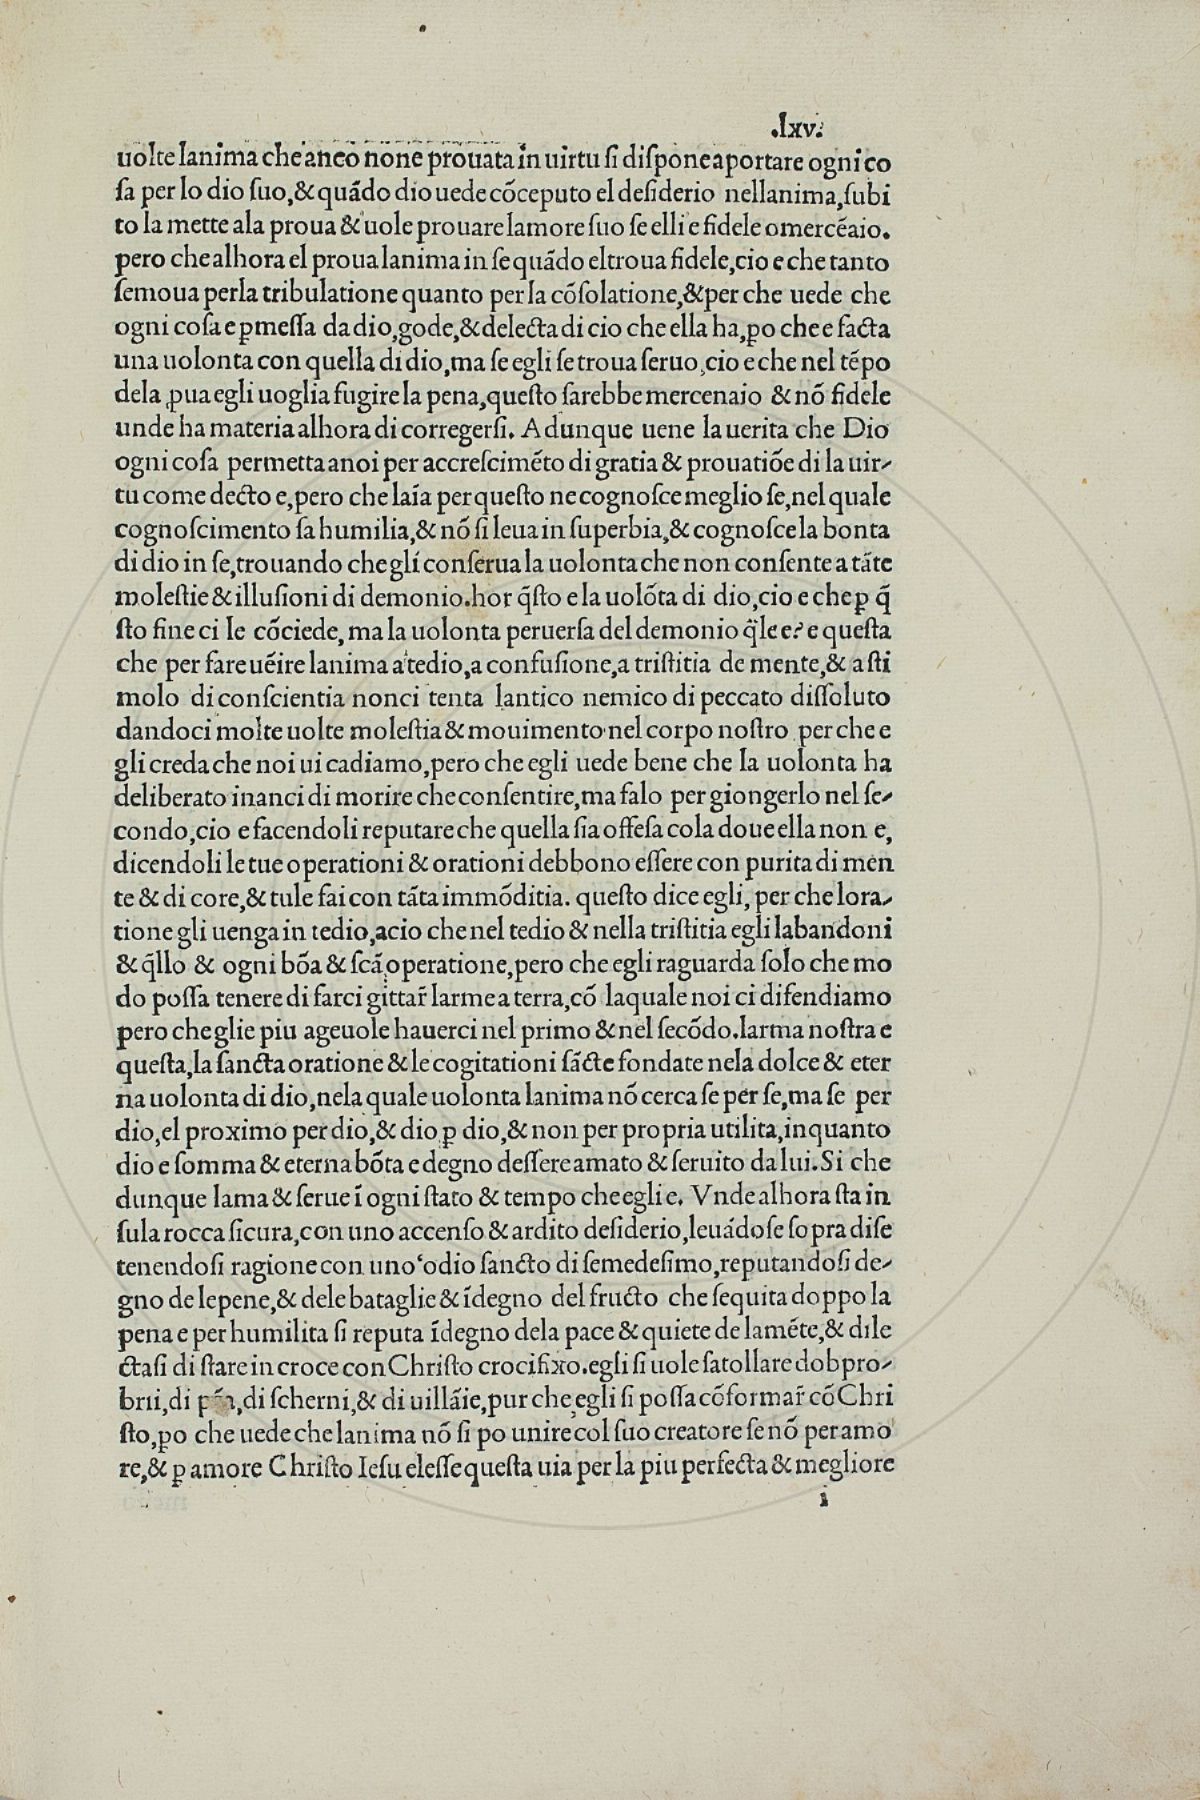 .lxv.
uolte lanima che anco none prouata in uirtu si dispone a portare ogni co
sa per lo dio suo,& quãdo dio uede cõceputo el desiderio nellanima,subi
to la mette ala proua & uole prouare lamore suo se elli e fidele o mercẽaio.
pero che alhora el proua lanima in se quãdo el troua fidele,cio e che tanto
semoua per la tribulatione quanto per la cõsolatione,& per che uede che
ogni cosa e ꝑmessa da dio,gode,& delecta di cio che ella ha,ꝑo che e facta
una uolonta con quella di dio,ma se egli se troua seruo,cio e che nel tẽpo
dela ꝓua egli uoglia fugire la pena,questo sarebbe mercenaio & nõ fidele
unde ha materia alhora di corregersi. Adunque uene la uerita che Dio
ogni cosa permetta a noi per accrescimẽto di gratia & prouatiõe di la uir-
tu come decto e,pero che laĩa per questo ne cognosce meglio se,nel quale
cognoscimento sa humilia,& nõ si leua in superbia,& cognosce la bonta
di dio in se,trouando che gli conserua la uolonta che non consente a tãte
molestie & illusioni di demonio.hor q̃sto e la uolõta di dio,cio e che ꝑ q̃
sto fine ci le cõciede, ma la uolonta peruersa del demonio q̃le e? e questa
che per fare uẽire lanima a tedio,a confusione,a tristitia de mente,& a sti
molo di conscientia non ci tenta lantico nemico di peccato dissoluto
dandoci molte uolte molestia & mouimento nel corpo nostro per che e
gli creda che noi ui cadiamo,pero che egli uede bene che la uolonta ha
deliberato inanci di morire che consentire,ma falo per giongerlo nel se-
condo,cio e facendoli reputare che quella sia offesa cola doue ella non e,
dicendoli le tue operationi & orationi debbono essere con purita di men
te & di core,& tu le fai con tãta immõditia. questo dice egli, per che lora-
tione gli uenga in tedio,acio che nel tedio & nella tristitia egli labandoni
& q̃llo & ogni bõa & scã operatione,pero che egli raguarda solo che mo
do possa tenere di farci gittar̃ larme a terra,cõ laquale noi ci difendiamo
pero che glie piu ageuole hauerci nel primo & nel secõdo.larma nostra e
questa,la sancta oratione & le cogitationi sãcte fondate nela dolce & eter
na uolonta di dio,nela quale uolonta lanima nõ cerca se per se,ma se per
dio,el proximo per dio,& dio ꝑ dio,& non per propria utilita,inquanto
dio e somma & eterna bõta e degno dessere amato & seruito da lui.Si che
dunque lama & serue ĩ ogni stato & tempo che egli e. Vnde alhora sta in
sula rocca sicura,con uno accenso & ardito desiderio,leuãdose sopra di se
tenendosi ragione con uno odio sancto di semedesimo,reputandosi de-
gno de le pene,& dele bataglie & ĩdegno del fructo che sequita doppo la
pena e per humilita si reputa ĩdegno dela pace & quiete de la mẽte,& dile
ctasi di stare in croce con Christo crocifixo.egli si uole satollare dobpro-
brii,di di scherni,& di uillãie,pur che egli si possa cõformar̃ cõ Chri
sto,ꝑo che uede che lanima nõ si po unire col suo creatore se nõ per amo
re,& ꝑ amore Christo Iesu elesse questa uia per la piu perfecta & megliore
i